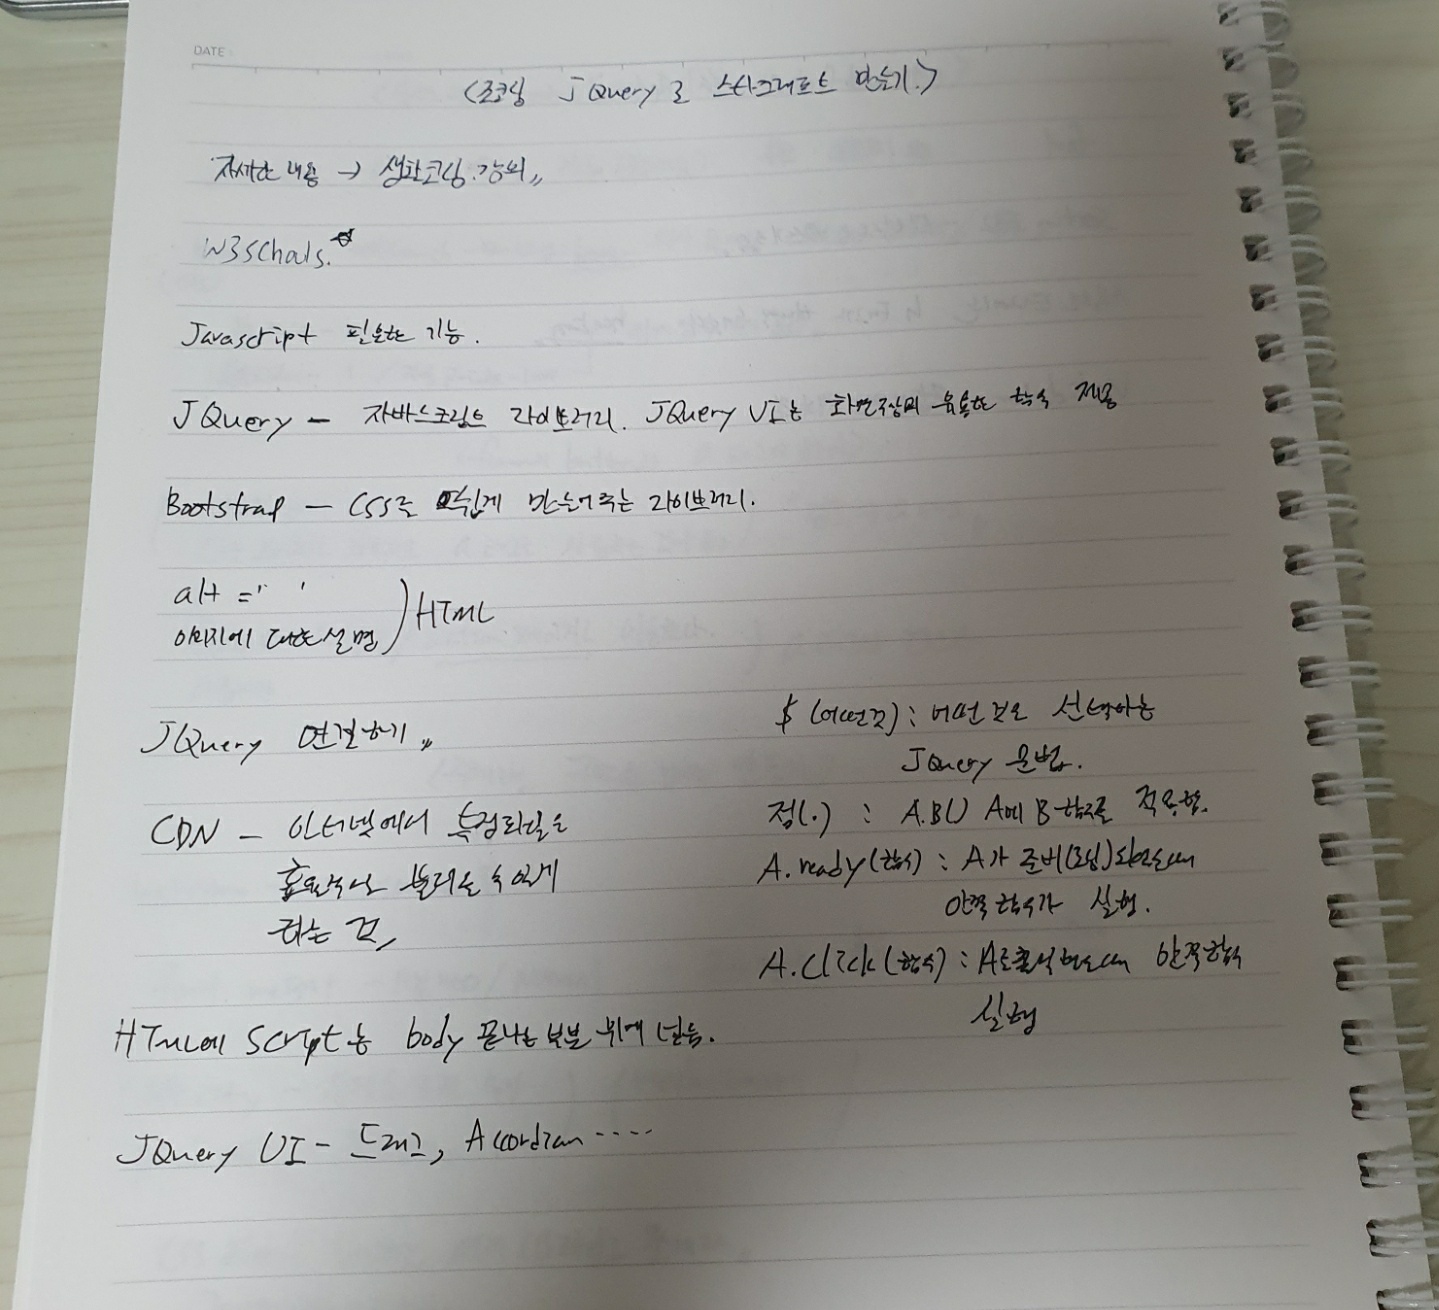 DATE :
<조코딩 JQuery로 스타크래프트 만들기>
자세한 내용 → 생활코딩 강의〃
W3Schals.☆
Javascript 필요한 기능.
JQuery - 자바스크립트 라이브러리. JQuery UI는 화면구성의 유용한 함수 제공
Bootstrap - CSS를 쉽게 만들어주는 라이브러리.
alt = " '
이미지에 대한 설명) HTML
JQuery 연결하기〃
CDN - 인터넷에서 특정파일을
효율적으로 불러올 수 있게
하는 것,
HTML에 Script는 body 끝나는 부분 위에 넣음.
JQuery UI - 드래그, Accordian ····
$ (어떤것) : 어떤 것을 선택하는
JQuery 문법.
점(.) : A.B() A에 B함수를 적용함.
A.ready(함수) : A가 준비(로딩)되었을때
안쪽 함수가 실행.
A.click(함수) : A를 클릭했을때 안쪽함수
실행